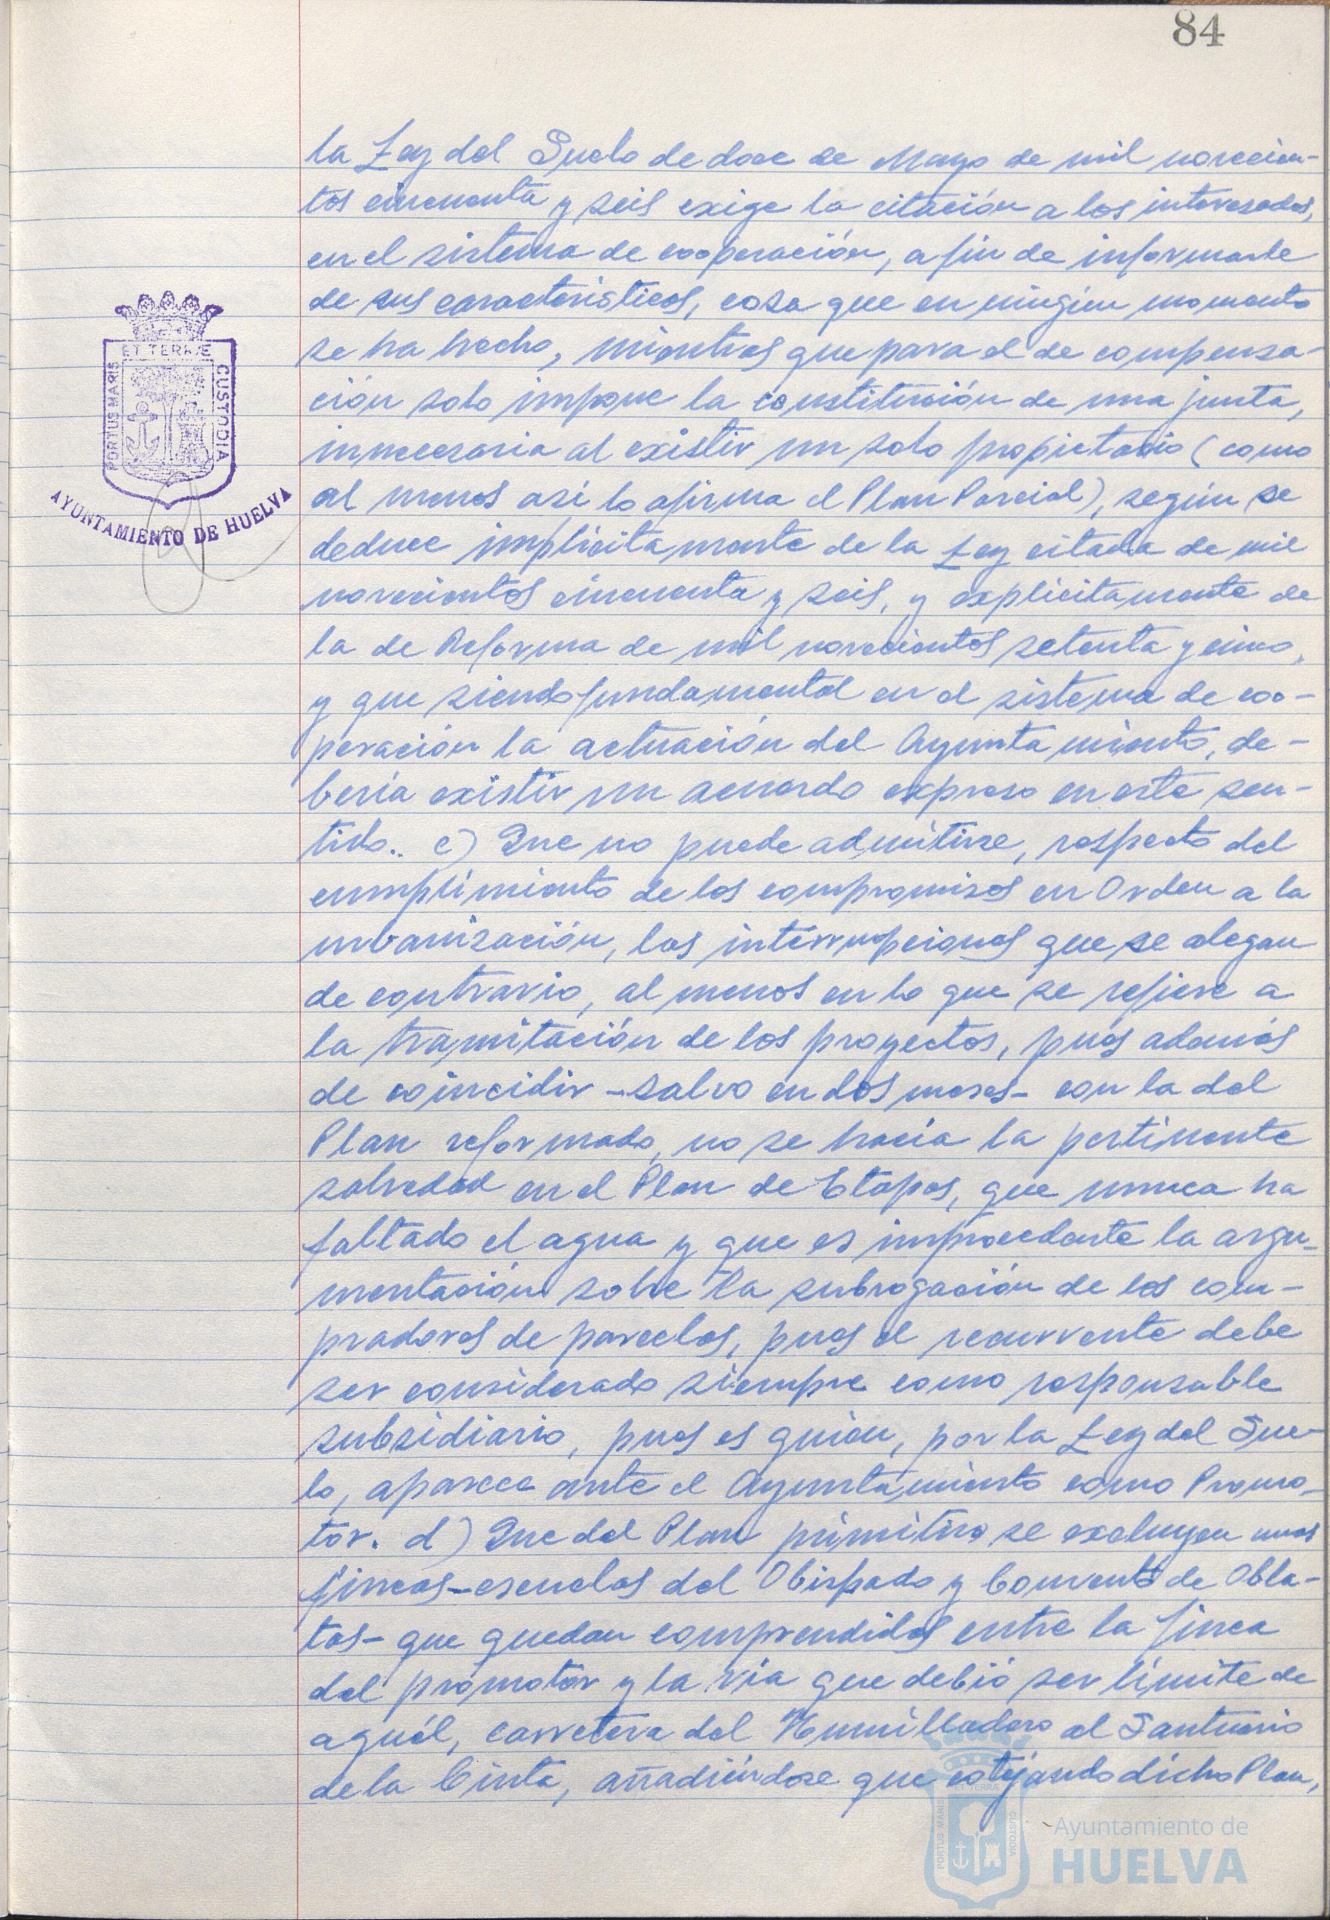 84
la Ley del Suelo de doce de Mayo de mil novecien-
tos cincuenta y seis exige la citación a los interesados,
en el sistema de cooperación, a fin de informarle
de sus características, cosa que en ningún momento
se ha hecho, mientras que para el de compensa-
ción solo impone la constitución de una junta,
innecesaria al existir un solo propietario (como
al menos así lo afirma el Plan Parcial), según se
deduce implícitamente de la Ley citada de mil
novecientos cincuenta y seis, y explícitamente de
la de Reforma de mil novecientos setenta y cinco,
y que siendo fundamental en el sistema de coo-
peración la actuación del Ayuntamiento, de-
bería existir un acuerdo expreso en este sen-
tido.. c) Que no puede admitirse, respecto del
cumplimiento de los compromisos en Orden a la
urbanización, las interrupciones que se alegan
de contrario, al menos en lo que se refiere a
la tramitación de los proyectos, pues además
de coincidir -salvo en dos meses- con la del
Plan reformado, no se hacía la pertinente
salvedad en el Plan de Etapas, que nunca ha
faltado el agua y que es improcedente la argu-
mentación sobre la subrogación de los com-
pradores de parcelas, pues el recurrente debe
ser considerado siempre como responsable
subsidiario, pues es quien, por la Ley del Sue-
lo, aparece ante el Ayuntamiento como Promo-
tor. d) Que del Plan primitivo se excluyen unas
fincas -escuelas del Obispado y Convento de Obla-
tas- que quedan comprendidas entre la finca
del promotor y la vía que debió ser límite de
aquél, carretera del Humilladero al Santuario
de la Cinta, añadiéndose que cotejando dicho Plan,
ET TERRÆ
PORTUS MARIS
CUSTODIA
AYUNTAMIENTO DE HUELVA
PORTUS MARIS
ET TERRÆ
CUSTODIA
Ayuntamiento de
HUELVA